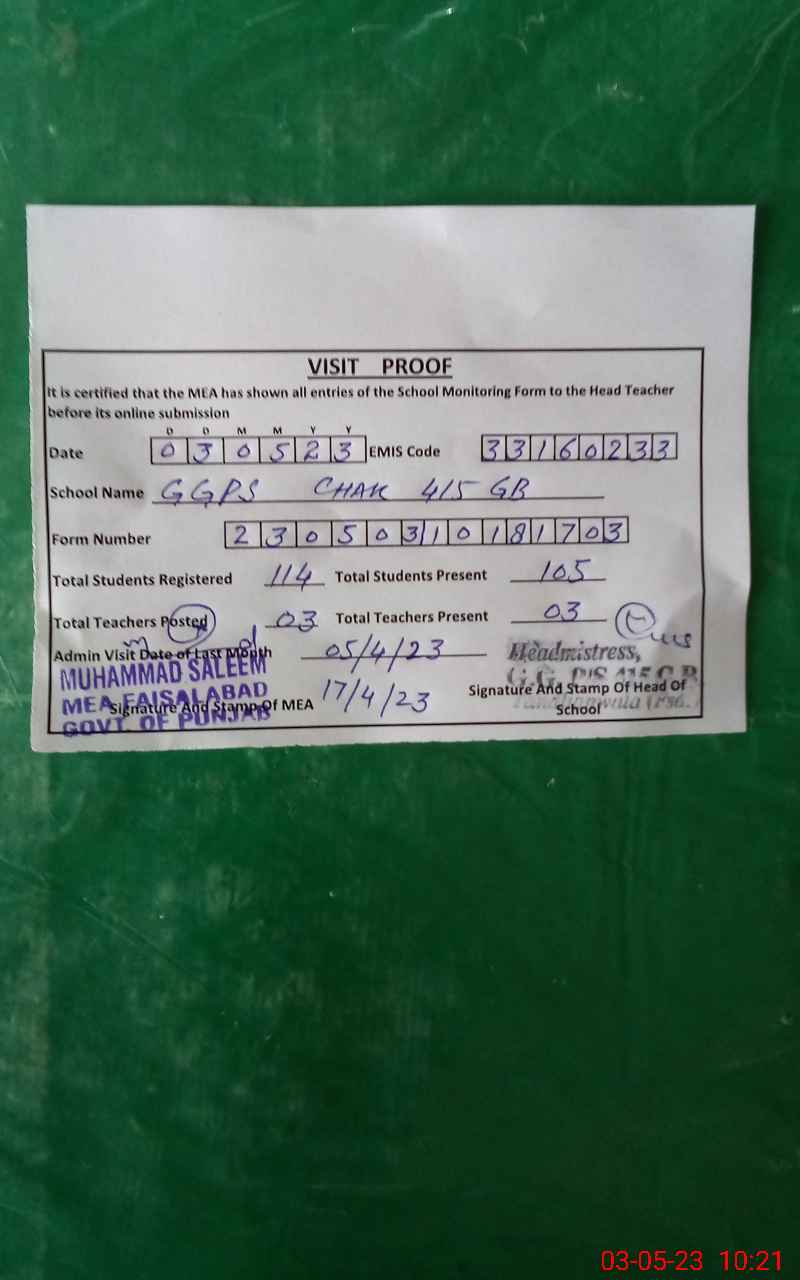 VISIT PROOF
It is certified that the MEA has shown all entries of the School Monitoring Form to the Head Teacher
before its online submission
D D M M Y Y
Date 0 3 0 5 2 3 EMIS Code 3 3 1 6 0 2 3 3
School Name GGPS CHAK 415 GB
Form Number 2 3 0 5 0 3 1 0 1 8 1 7 0 3
Total Students Registered 114 Total Students Present 105
Total Teachers Posted 03 Total Teachers Present 03
Admin Visit Date of Last Month 05/4/23
17/4/23
MUHAMMAD SALEEM
MEA FAISALABAD
GOVT. OF PUNJAB
Signature And Stamp Of MEA
Headmistress,
G.G. P/S 415 G.B
Signature And Stamp Of Head Of
School
03-05-23 10:21